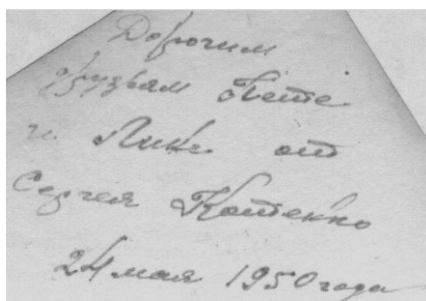 Дорогим
друзьям Пете
и Лике от
Сергея Котенко
24 мая 1950 года